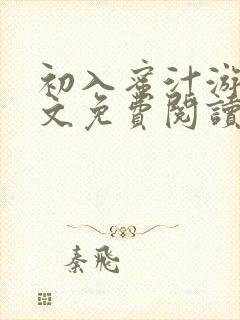 初入蜜汁游
文免費閱讀
秦飛